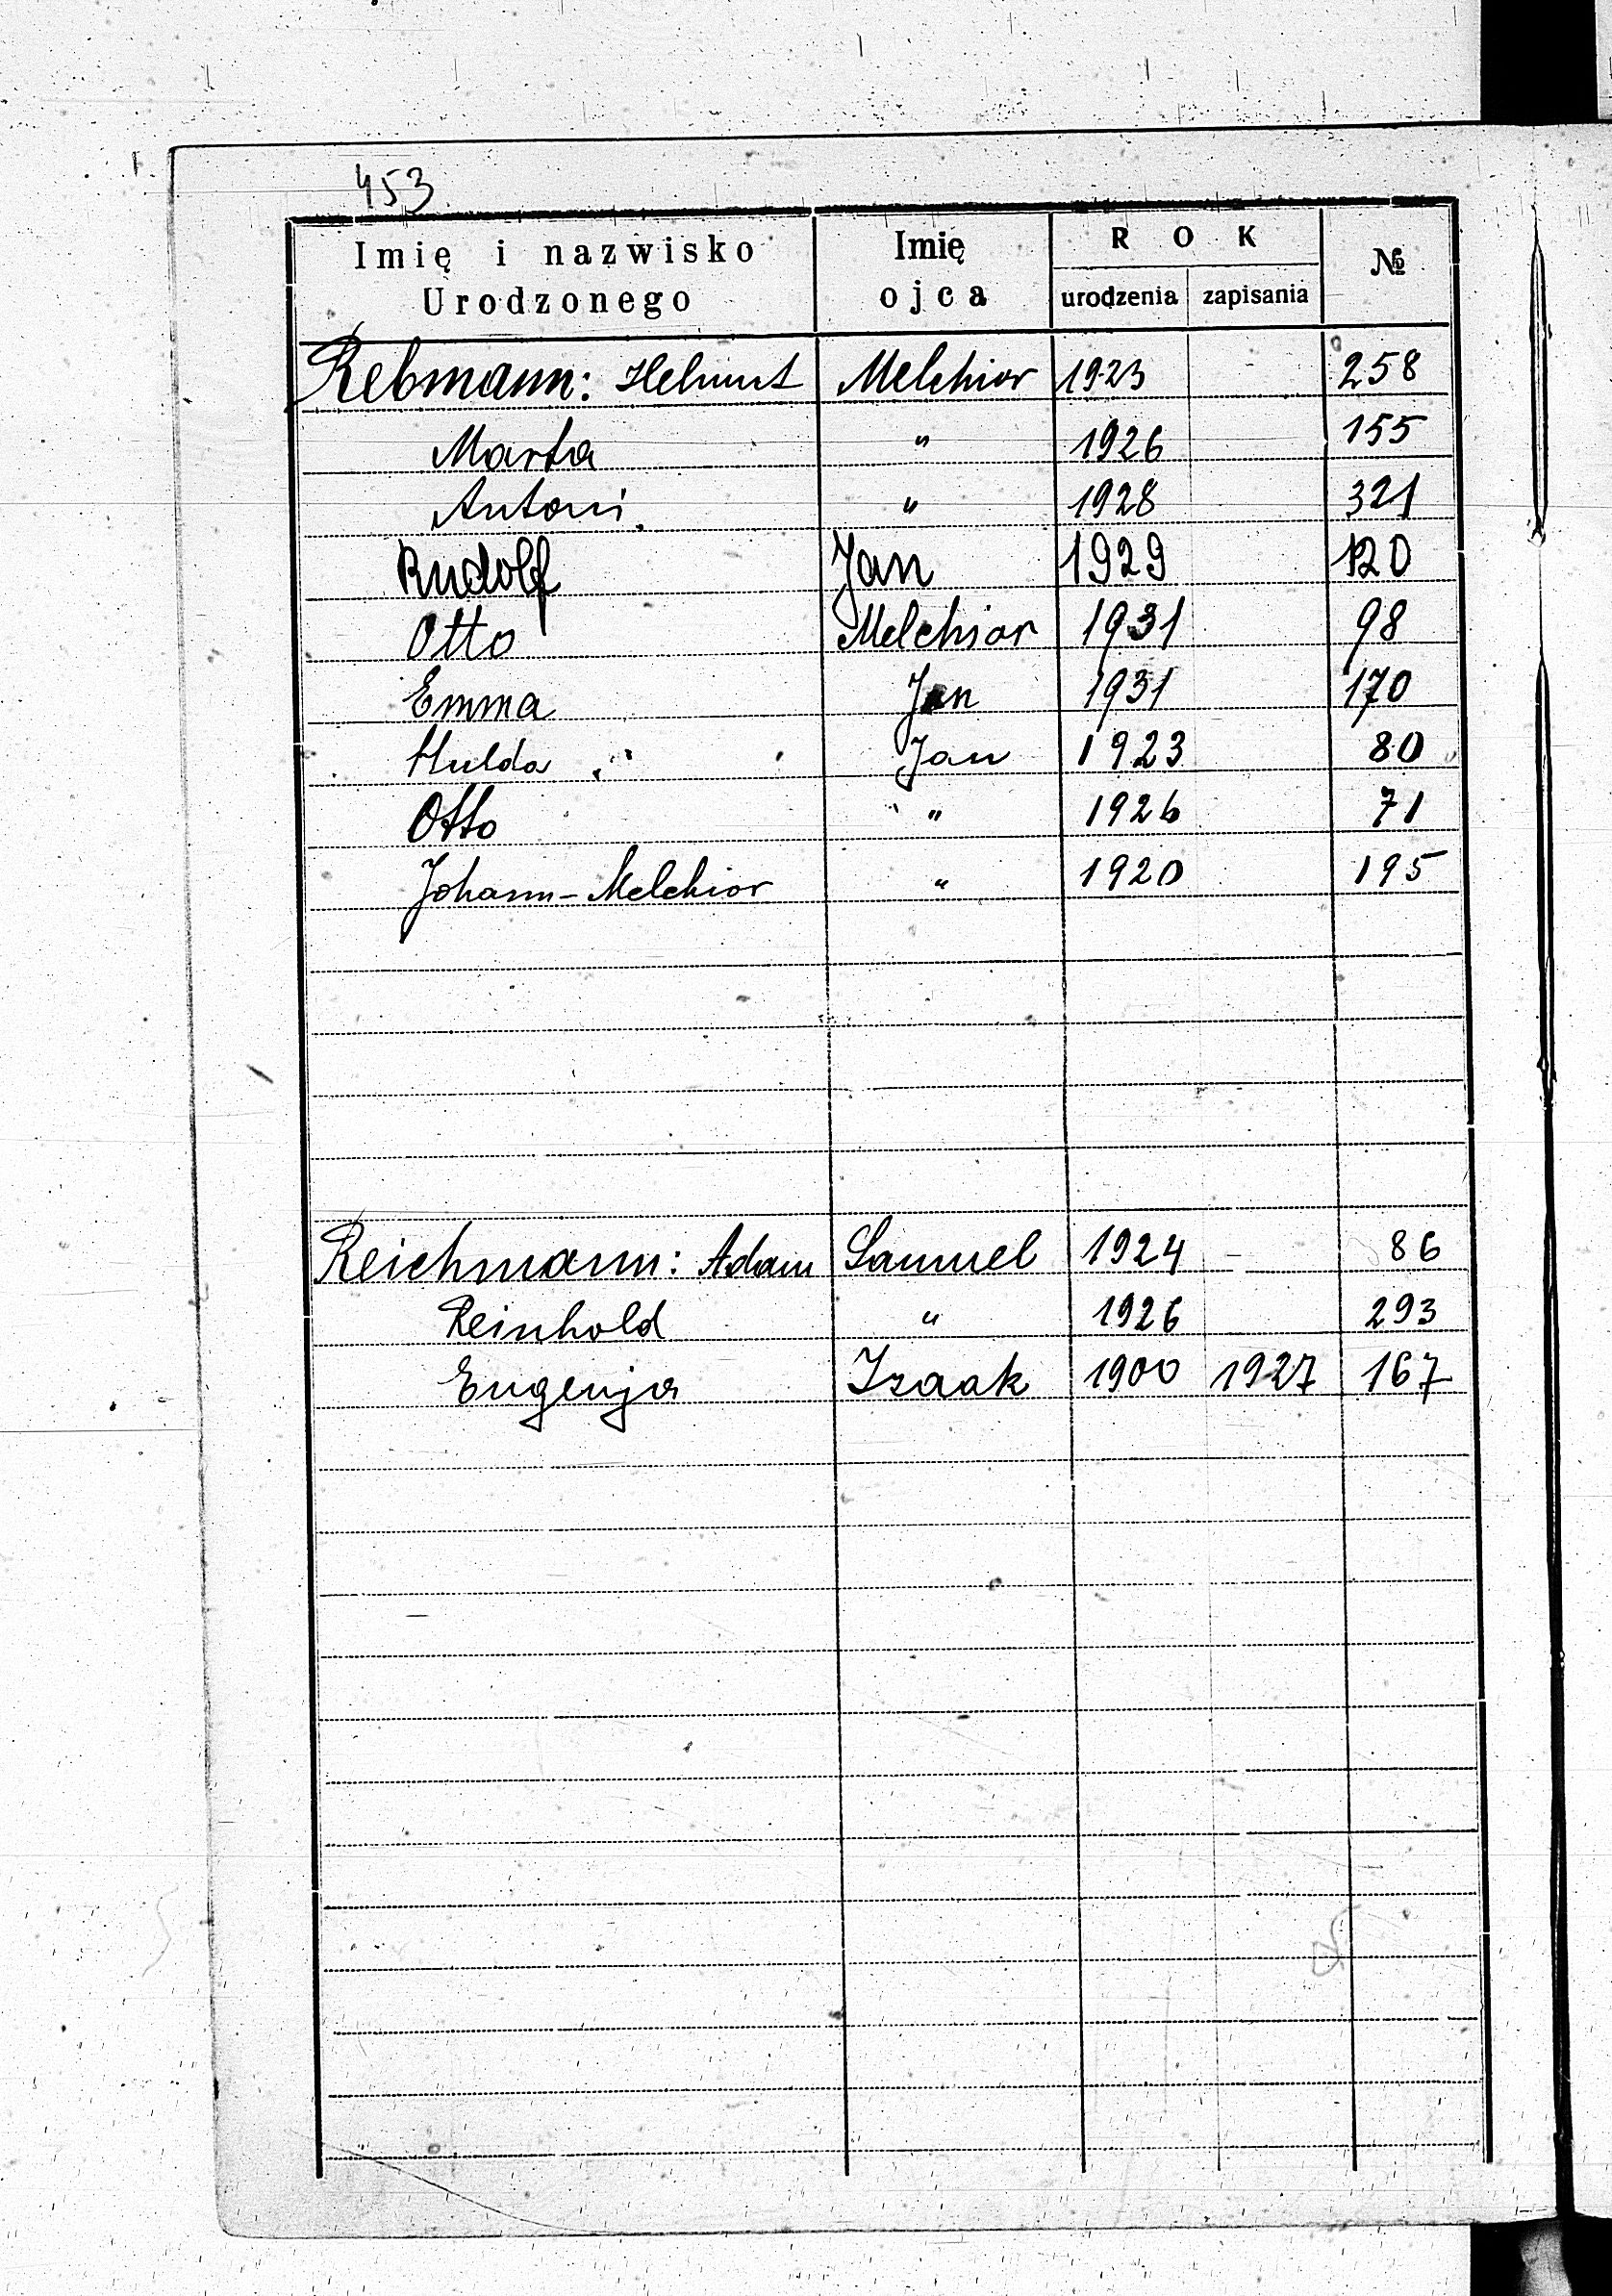 453
Imię i nazwisko Urodzonego Imię ojca ROK urodzenia zapisania №
Rebmann: Helmut Melchior 1923 258
Marta " 1926 155
Antoni " 1928 321
Rudolf Jan 1929 120
Otto Melchior 1931 98
Emma Jan 1931 170
Hulda Jan 1923 80
Otto " 1926 71
Johann-Melchior " 1920 195
Reichmann: Adam Samuel 1924 86
Reinhold " 1926 293
Eugenja Izaak 1900 1927 167